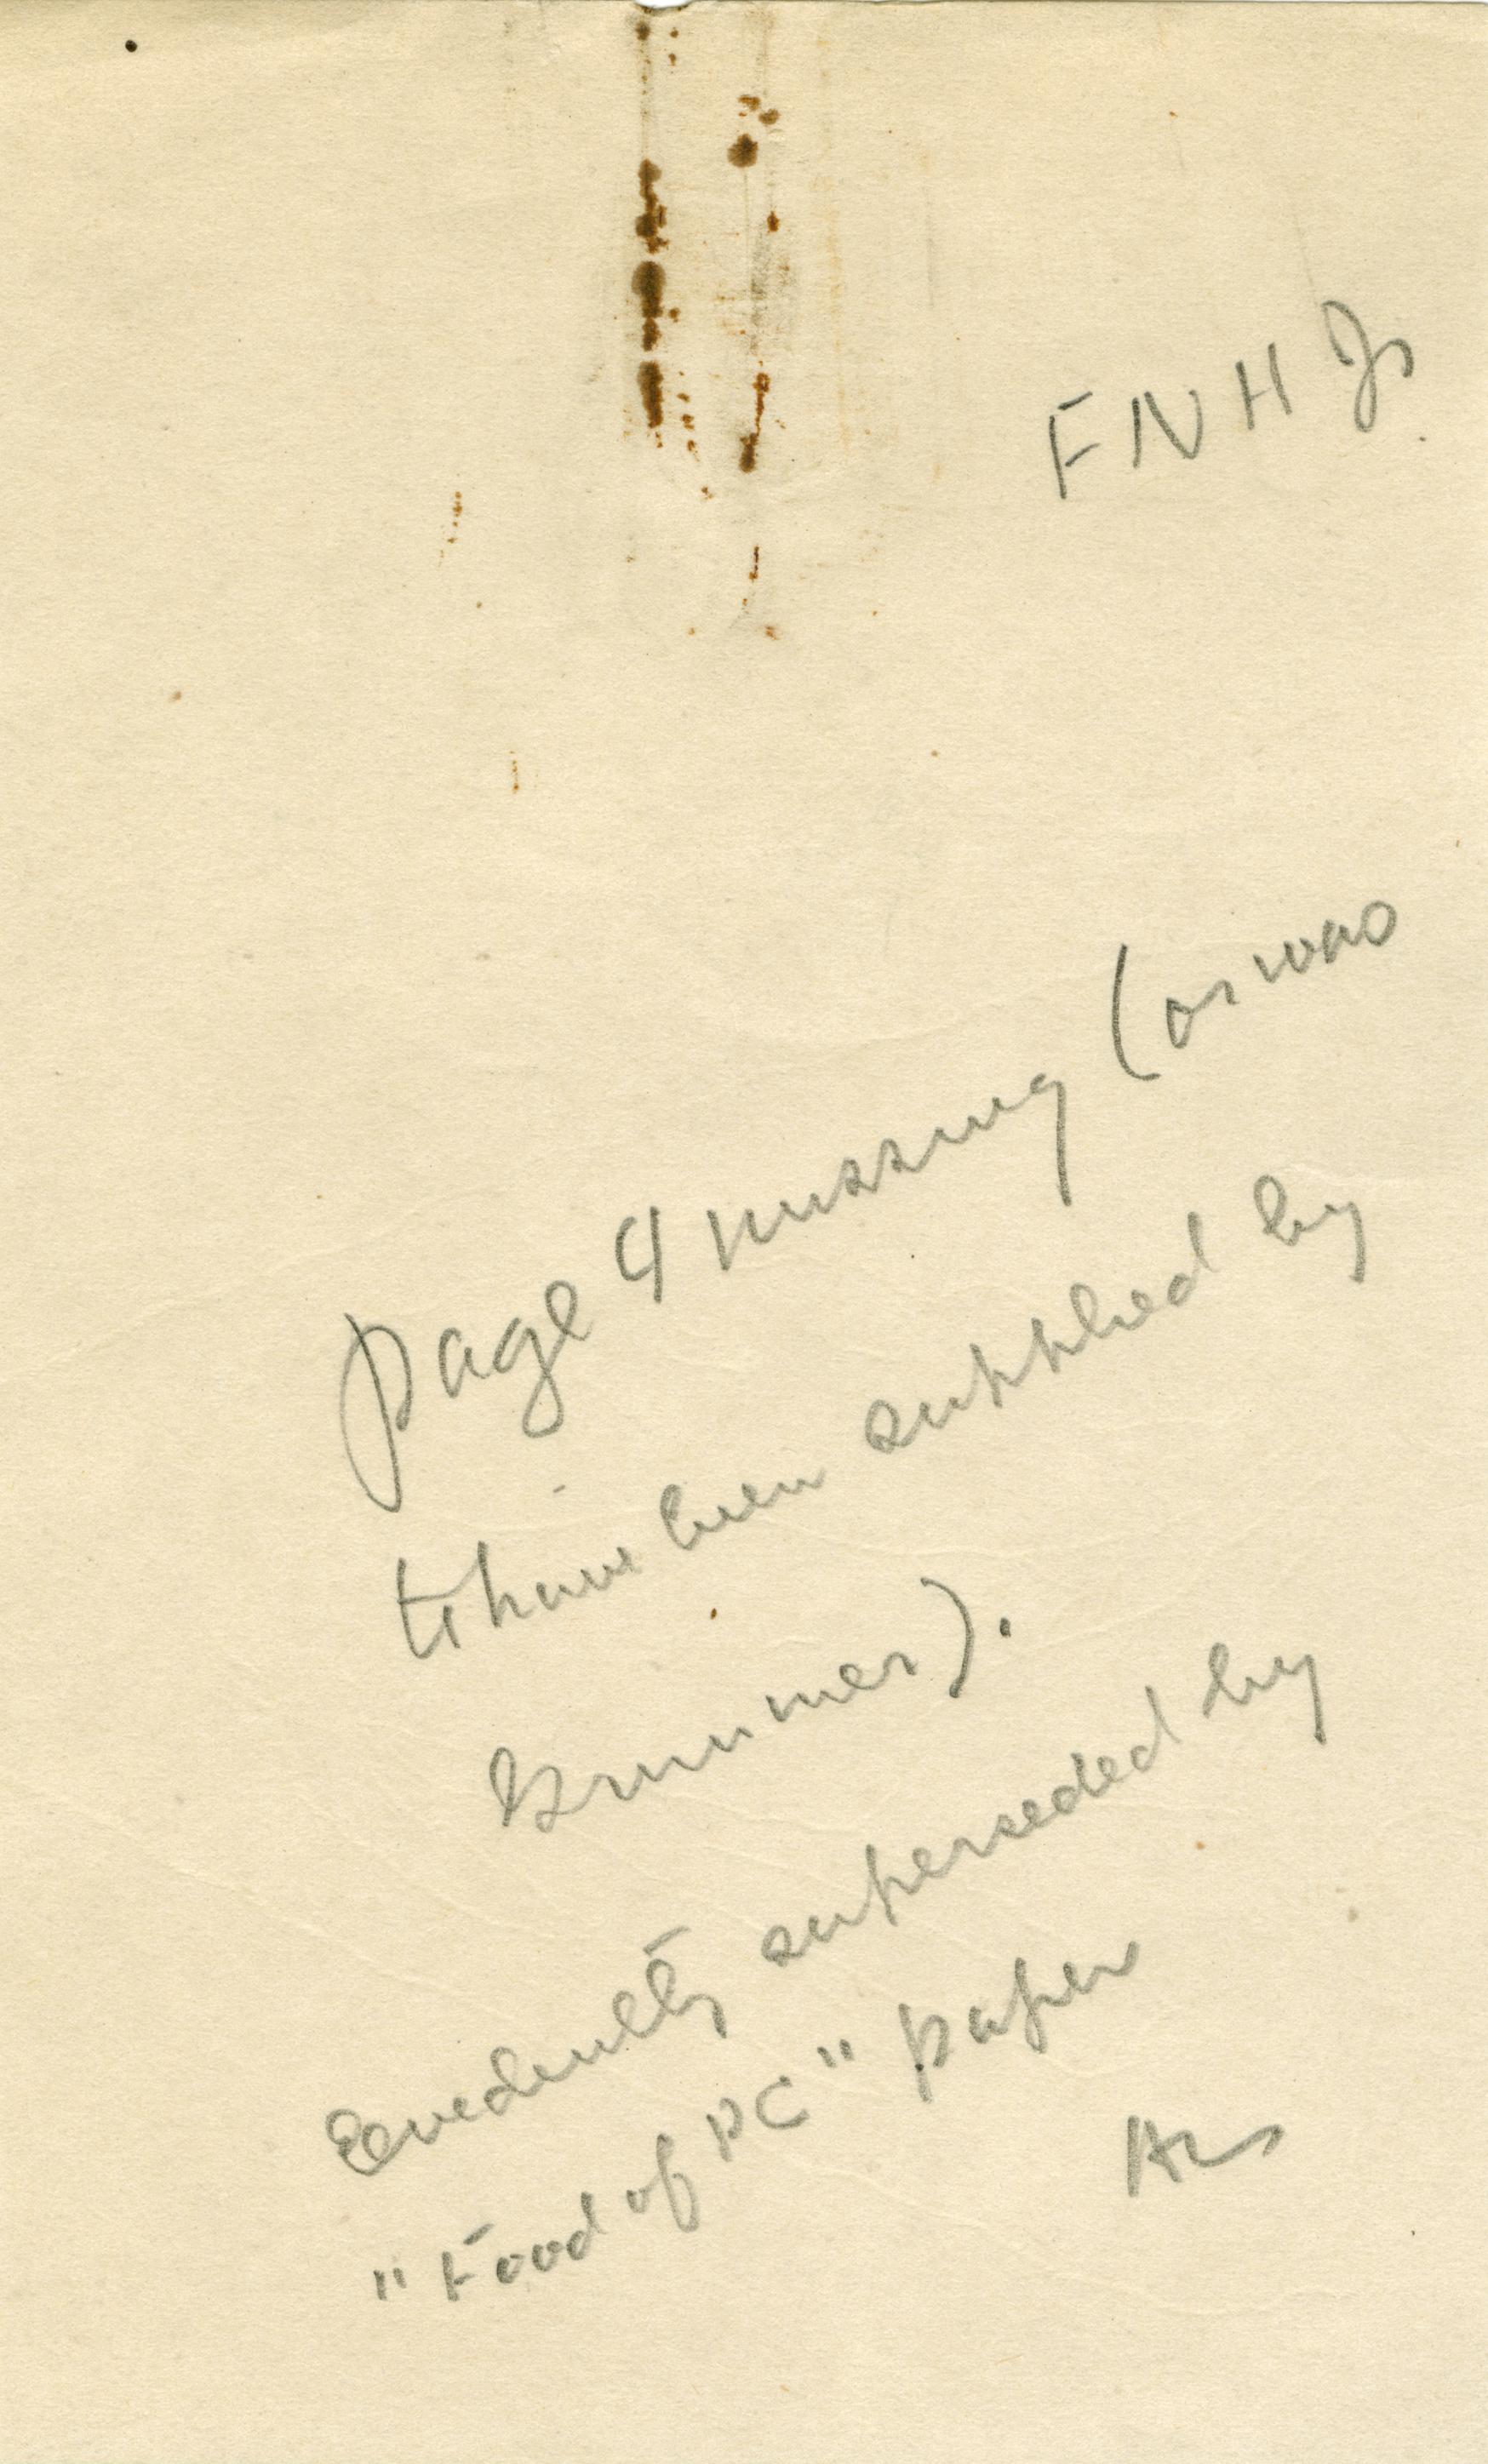 FNH Jr
page 4 missing (or was
to have been supplied by
Brunner).
Evidently superseded by
"Food of PC" paper